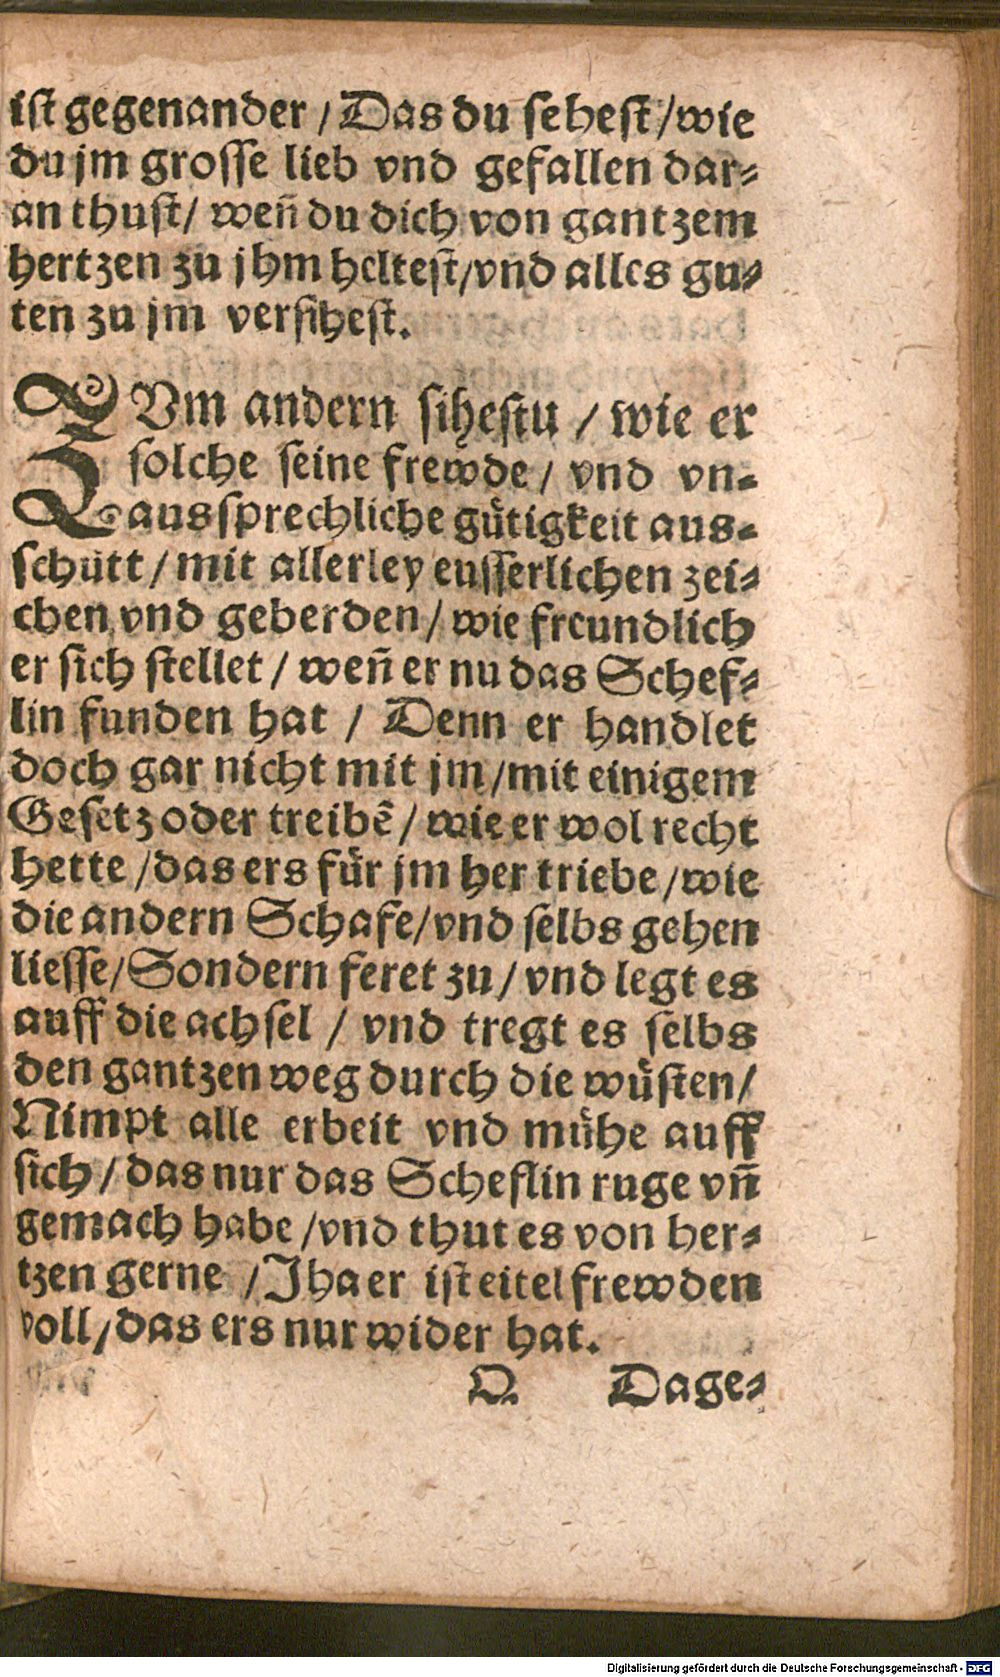 ist gegenander / Das du sehest / wie
du jm grosse lieb vnd gefallen dar⸗
an thust / weñ du dich von gantzem
hertzen zu jhm heltest / vnd alles gu⸗
ten zu jm versihest.
ZVm andern sihestu / wie er
solche seine frewde / vnd vn⸗
aussprechliche gütigkeit aus⸗
schütt / mit allerley eusserlichen zei⸗
chen vnd geberden / wie freundlich
er sich stellet / weñ er nu das Schef⸗
lin funden hat / Denn er handlet
doch gar nicht mit jm / mit einigem
Gesetz oder treibē / wie er wol recht
hette / das ers für jm her triebe / wie
die andern Schafe / vnd selbs gehen
liesse / Sondern feret zu / vnd legt es
auff die achsel / vnd tregt es selbs
den gantzen weg durch die wüsten /
Nimpt alle erbeit vnd mühe auff
sich / das nur das Scheflin ruge vñ
gemach habe / vnd thut es von her⸗
tzen gerne / Jha er ist eitel frewden
voll / das ers nur wider hat.
O Dage⸗
Digitalisierung gefördert durch die Deutsche Forschungsgemeinschaft - DFG